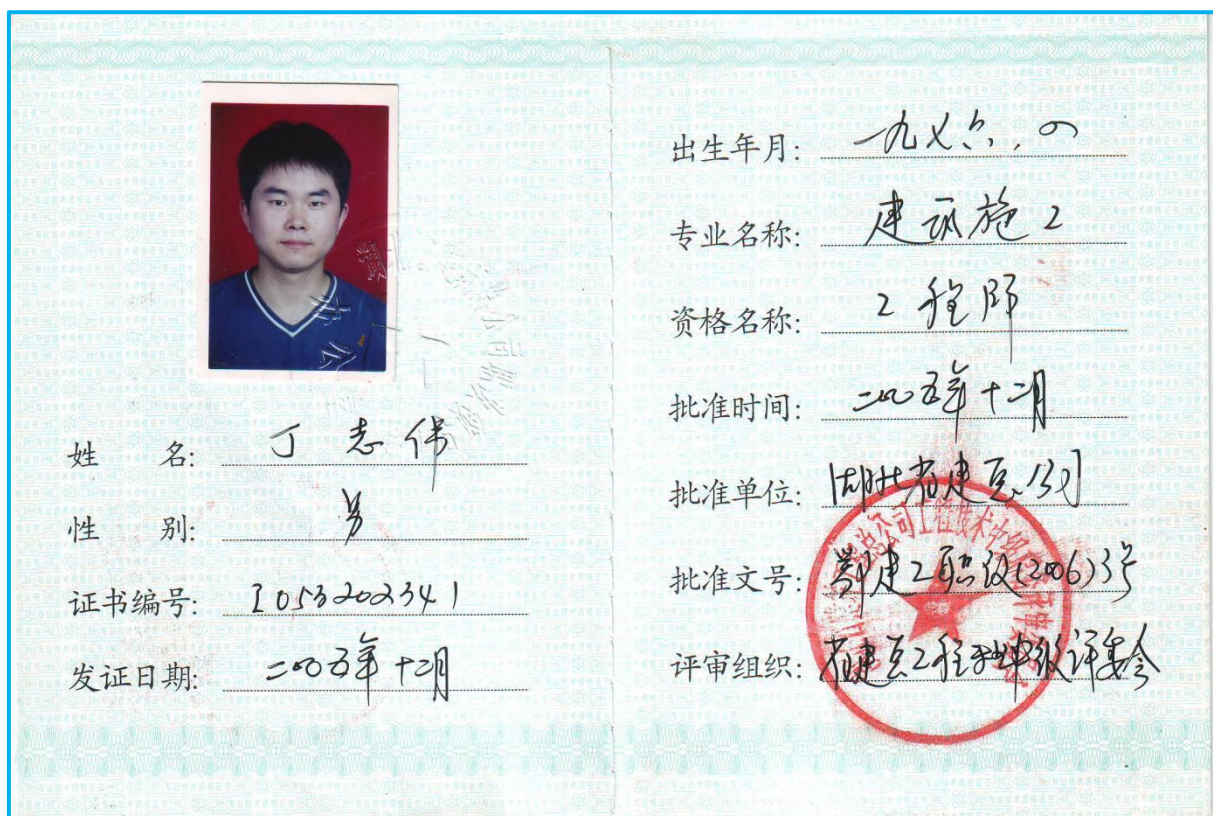 姓 名: 丁志伟
性 别: 男
证书编号: I053202341
发证日期: 二〇〇五年十二月
出生年月: 一九七六.四
专业名称: 建筑施工
资格名称: 工程师
批准时间: 二〇〇五年十二月
批准单位: 湖北省建总公司
批准文号: 鄂建工职改(2006)3号
评审组织: 省建总工程技术中级评委会
总公司工程技术中级